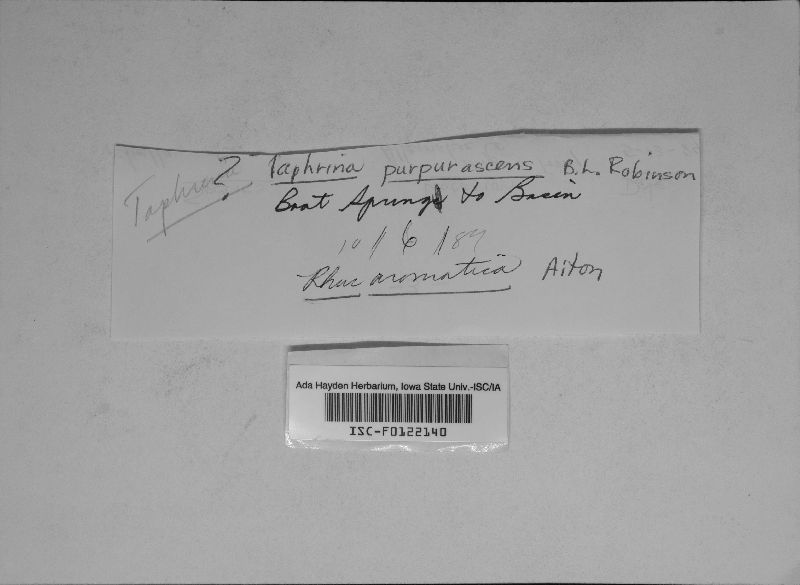 Taphrina
? Taphrina purpurascens B.L. Robinson
Boat Springs to Basin
10/6/89
Rhus aromatica Aiton
Ada Hayden Herbarium, Iowa State Univ.-ISC/IA
ISC-F0122140